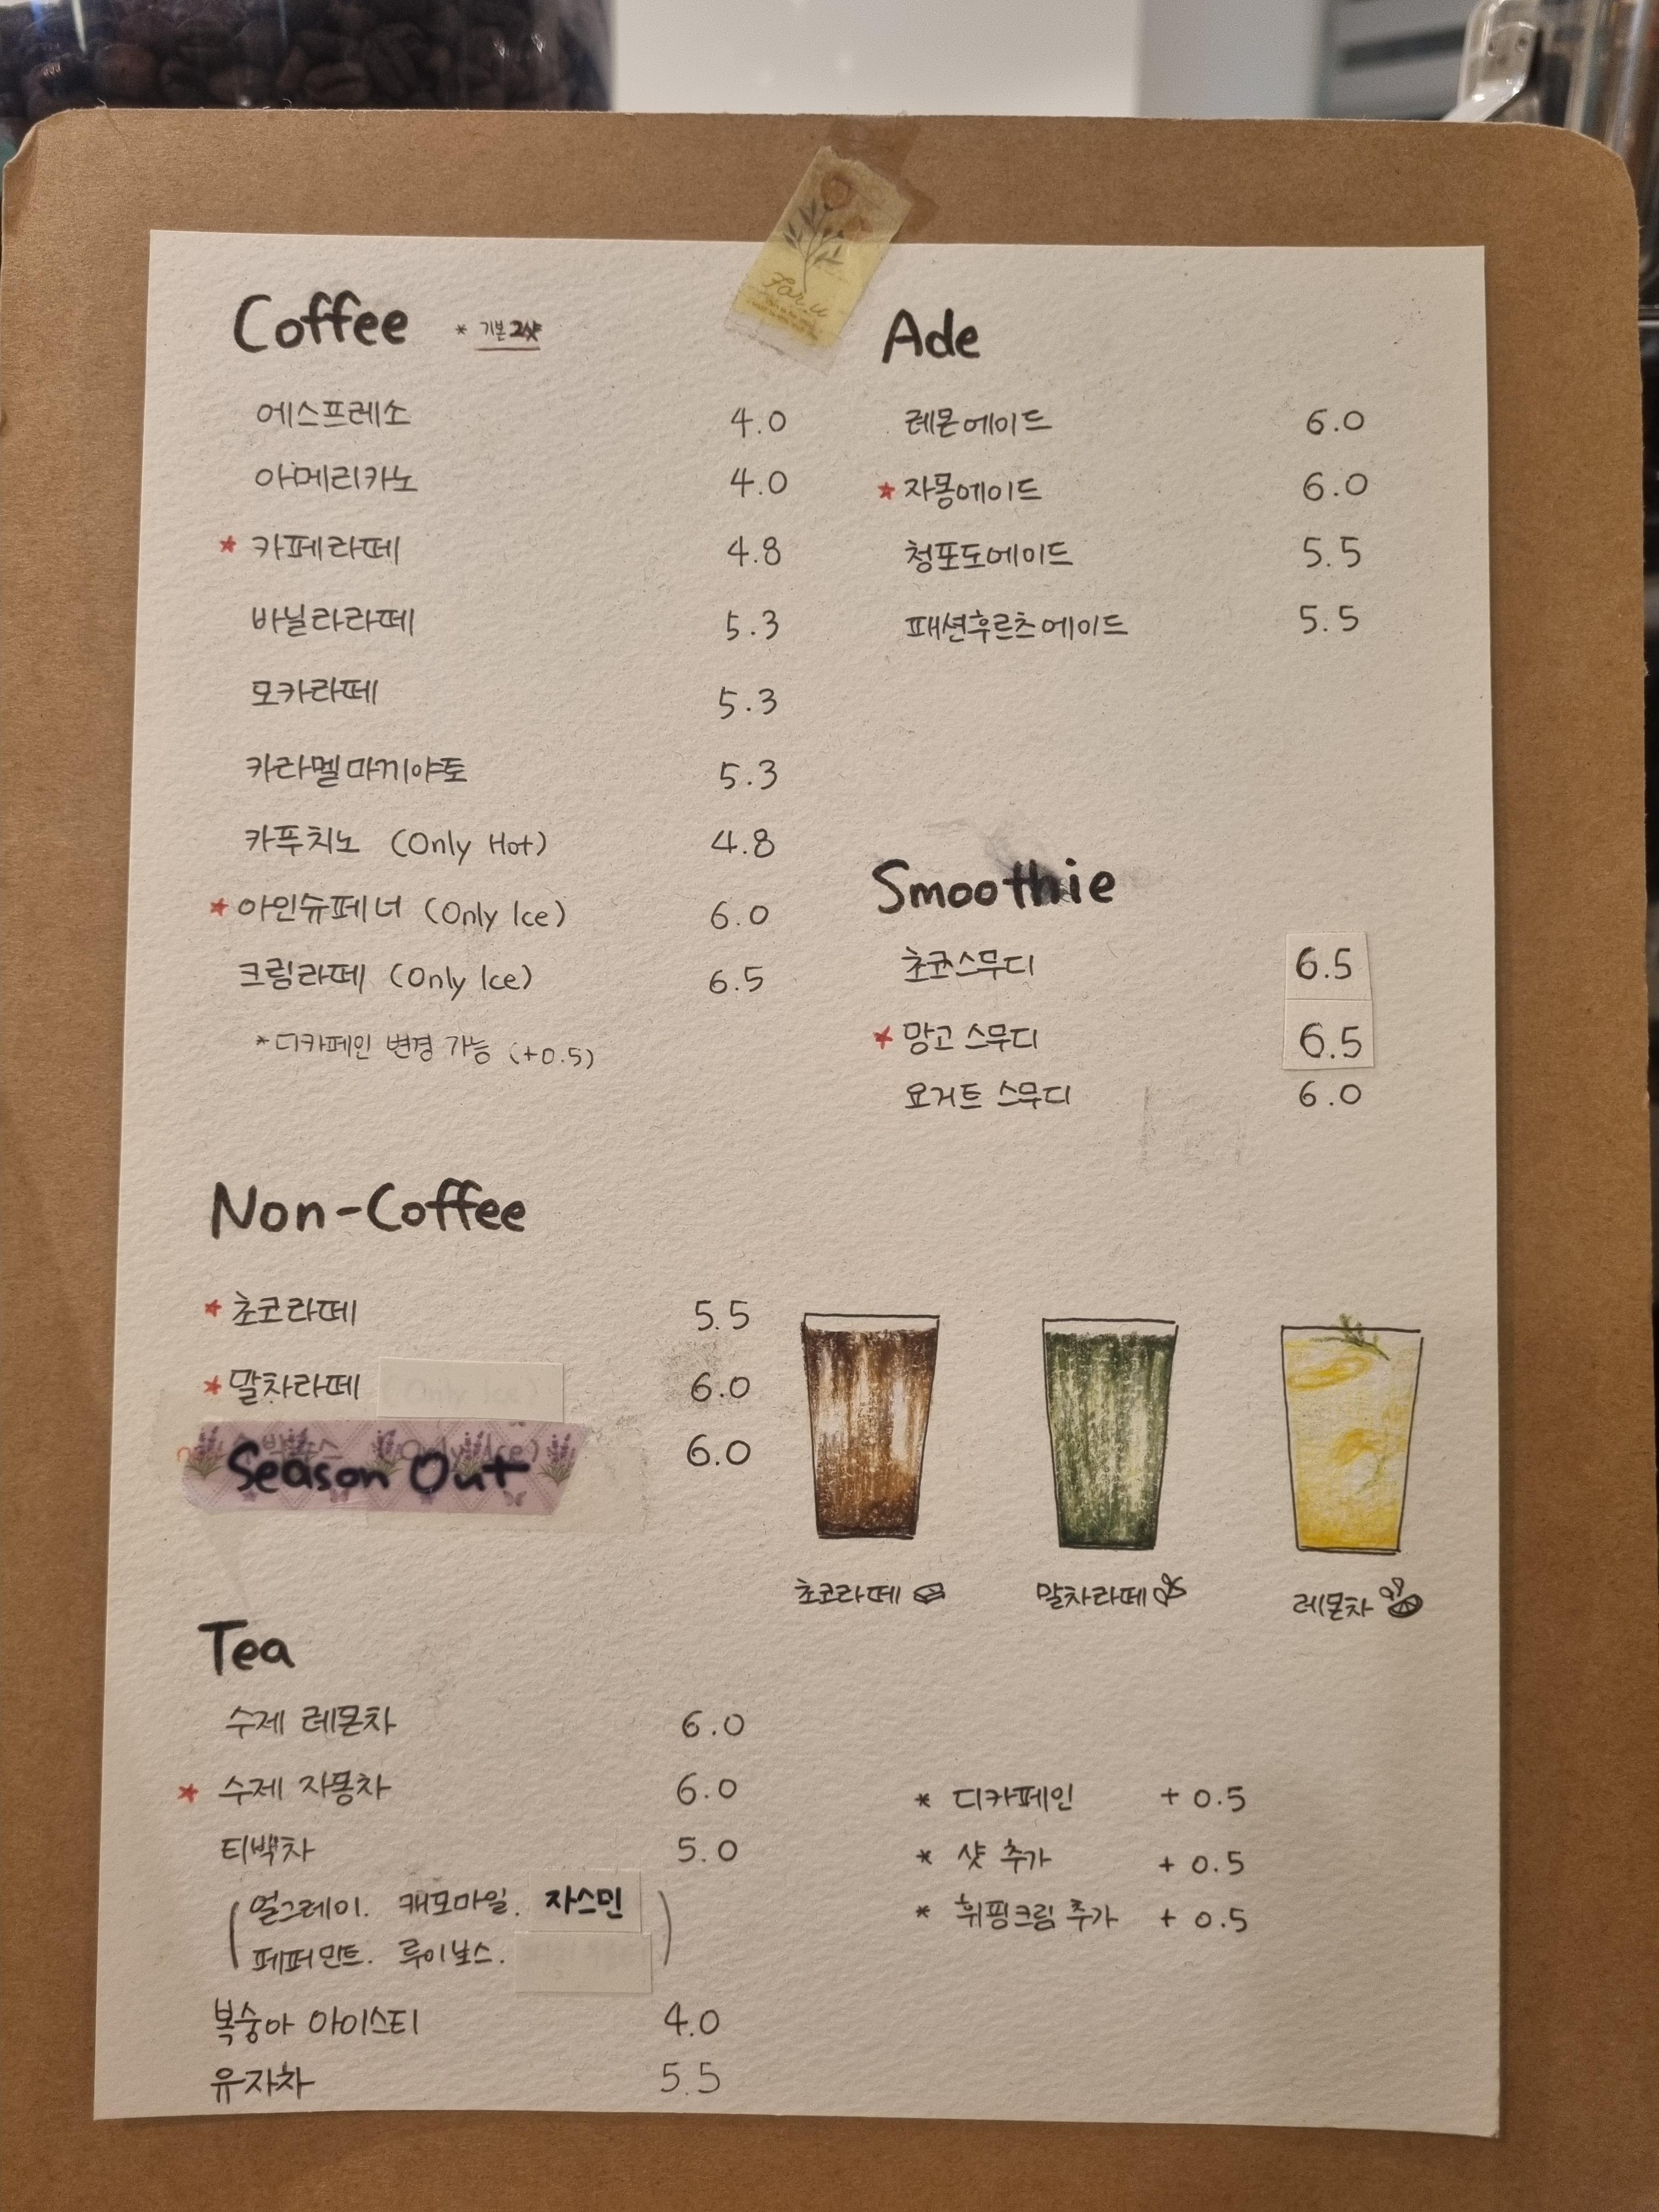 For u
Coffee * 기본 2샷
에스프레소 4.0
아메리카노 4.0
★ 카페라떼 4.8
바닐라라떼 5.3
모카라떼 5.3
카라멜마끼야또 5.3
카푸치노 (Only Hot) 4.8
★ 아인슈페너 (Only Ice) 6.0
크림라떼 (Only Ice) 6.5
*디카페인 변경 가능 (+0.5)
Non-Coffee
★ 초코라떼 5.5
★ 말차라떼 6.0
Season Out 6.0
Tea
수제 레몬차 6.0
★ 수제 자몽차 6.0
티백차 5.0
(얼그레이. 캐모마일. 자스민
페퍼민트. 루이보스. )
복숭아 아이스티 4.0
유자차 5.5
Ade
레몬에이드 6.0
★ 자몽에이드 6.0
청포도에이드 5.5
패션후르츠에이드 5.5
Smoothie
초코스무디 6.5
★ 망고 스무디 6.5
요거트 스무디 6.0
초코라떼 말차라떼 레몬차
* 디카페인 + 0.5
* 샷 추가 + 0.5
* 휘핑크림 추가 + 0.5